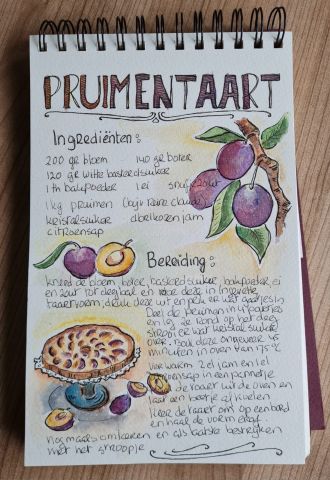 PRUIMENTAART
Ingrediënten:
200 gr bloem 140 gr boter
120 gr witte basterdsuiker
1 th bakpoeder 1 ei snufje zout
1 kg pruimen (bijv reine claude)
kristalsuiker abrikozenjam
citroensap
Bereiding:
kneed de bloem, boter, basterdsuiker, bakpoeder, ei
en zout tot deeg bal en deze in ingevette
taartvorm, druk deze uit en prik er wat gaatjes in
Deel de pruimen in 4 partjes
en leg ze rond op het deeg
strooi er wat kristalsuiker
over. Bak deze ongeveer 45
minuten in oven van 175°C
Verwarm 2 el jam en 1 el
citroensap in een pannetje
Haal de taart uit de oven en
laat een beetje afkoelen
Keer de taart om op een bord
en haal de vorm eraf.
nogmaals omkeren en als laatste bestrijken
met het siroopje